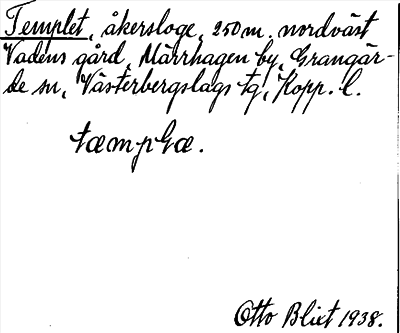 Templet, åkersloge, 250 m. nordväst
Vadens gård, Märrhagen by, Grangär-
de sn, Västerbergslags tg, Kopp. l.
tæmpɫæ.
Otto Blixt 1938.